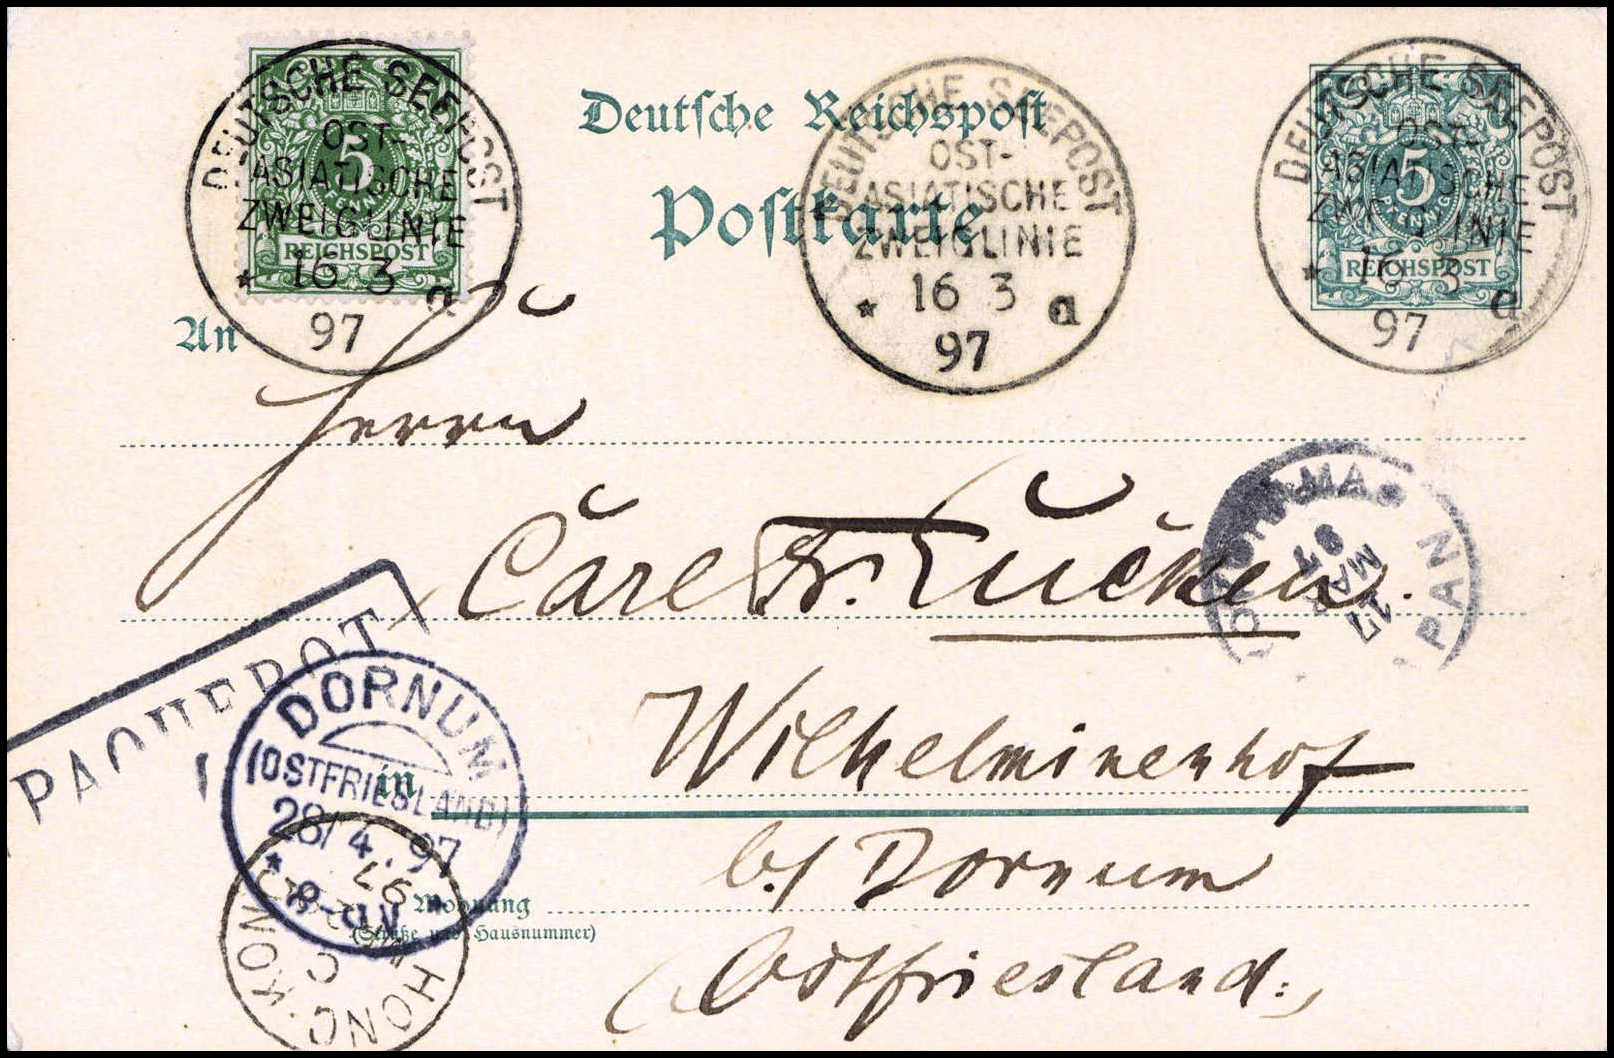 DEUTSCHE SEEPOST
OST-
ASIATISCHE
ZWEIGLINIE
* 16 3 a
97
5
PFENNIG
REICHSPOST
Deutsche Reichspost
Postkarte
DEUTSCHE SEEPOST
OST-
ASIATISCHE
ZWEIGLINIE
* 16 3 a
97
DEUTSCHE SEEPOST
OST-
ASIATISCHE
ZWEIGLINIE
* 16 3 a
97
5
PFENNIG
REICHSPOST
An
Herrn
Carl Fr. Lücken.
YOKOHAMA
17
MAR
97
JAPAN
PAQUEBOT
Wilhelminenhof
in
DORNUM
(OSTFRIESLAND)
28/4.97
* 8-9N
b/ Dornum
Wohnung
(Straße und Hausnummer)
HONG-KONG
C
97
Ostfriesland